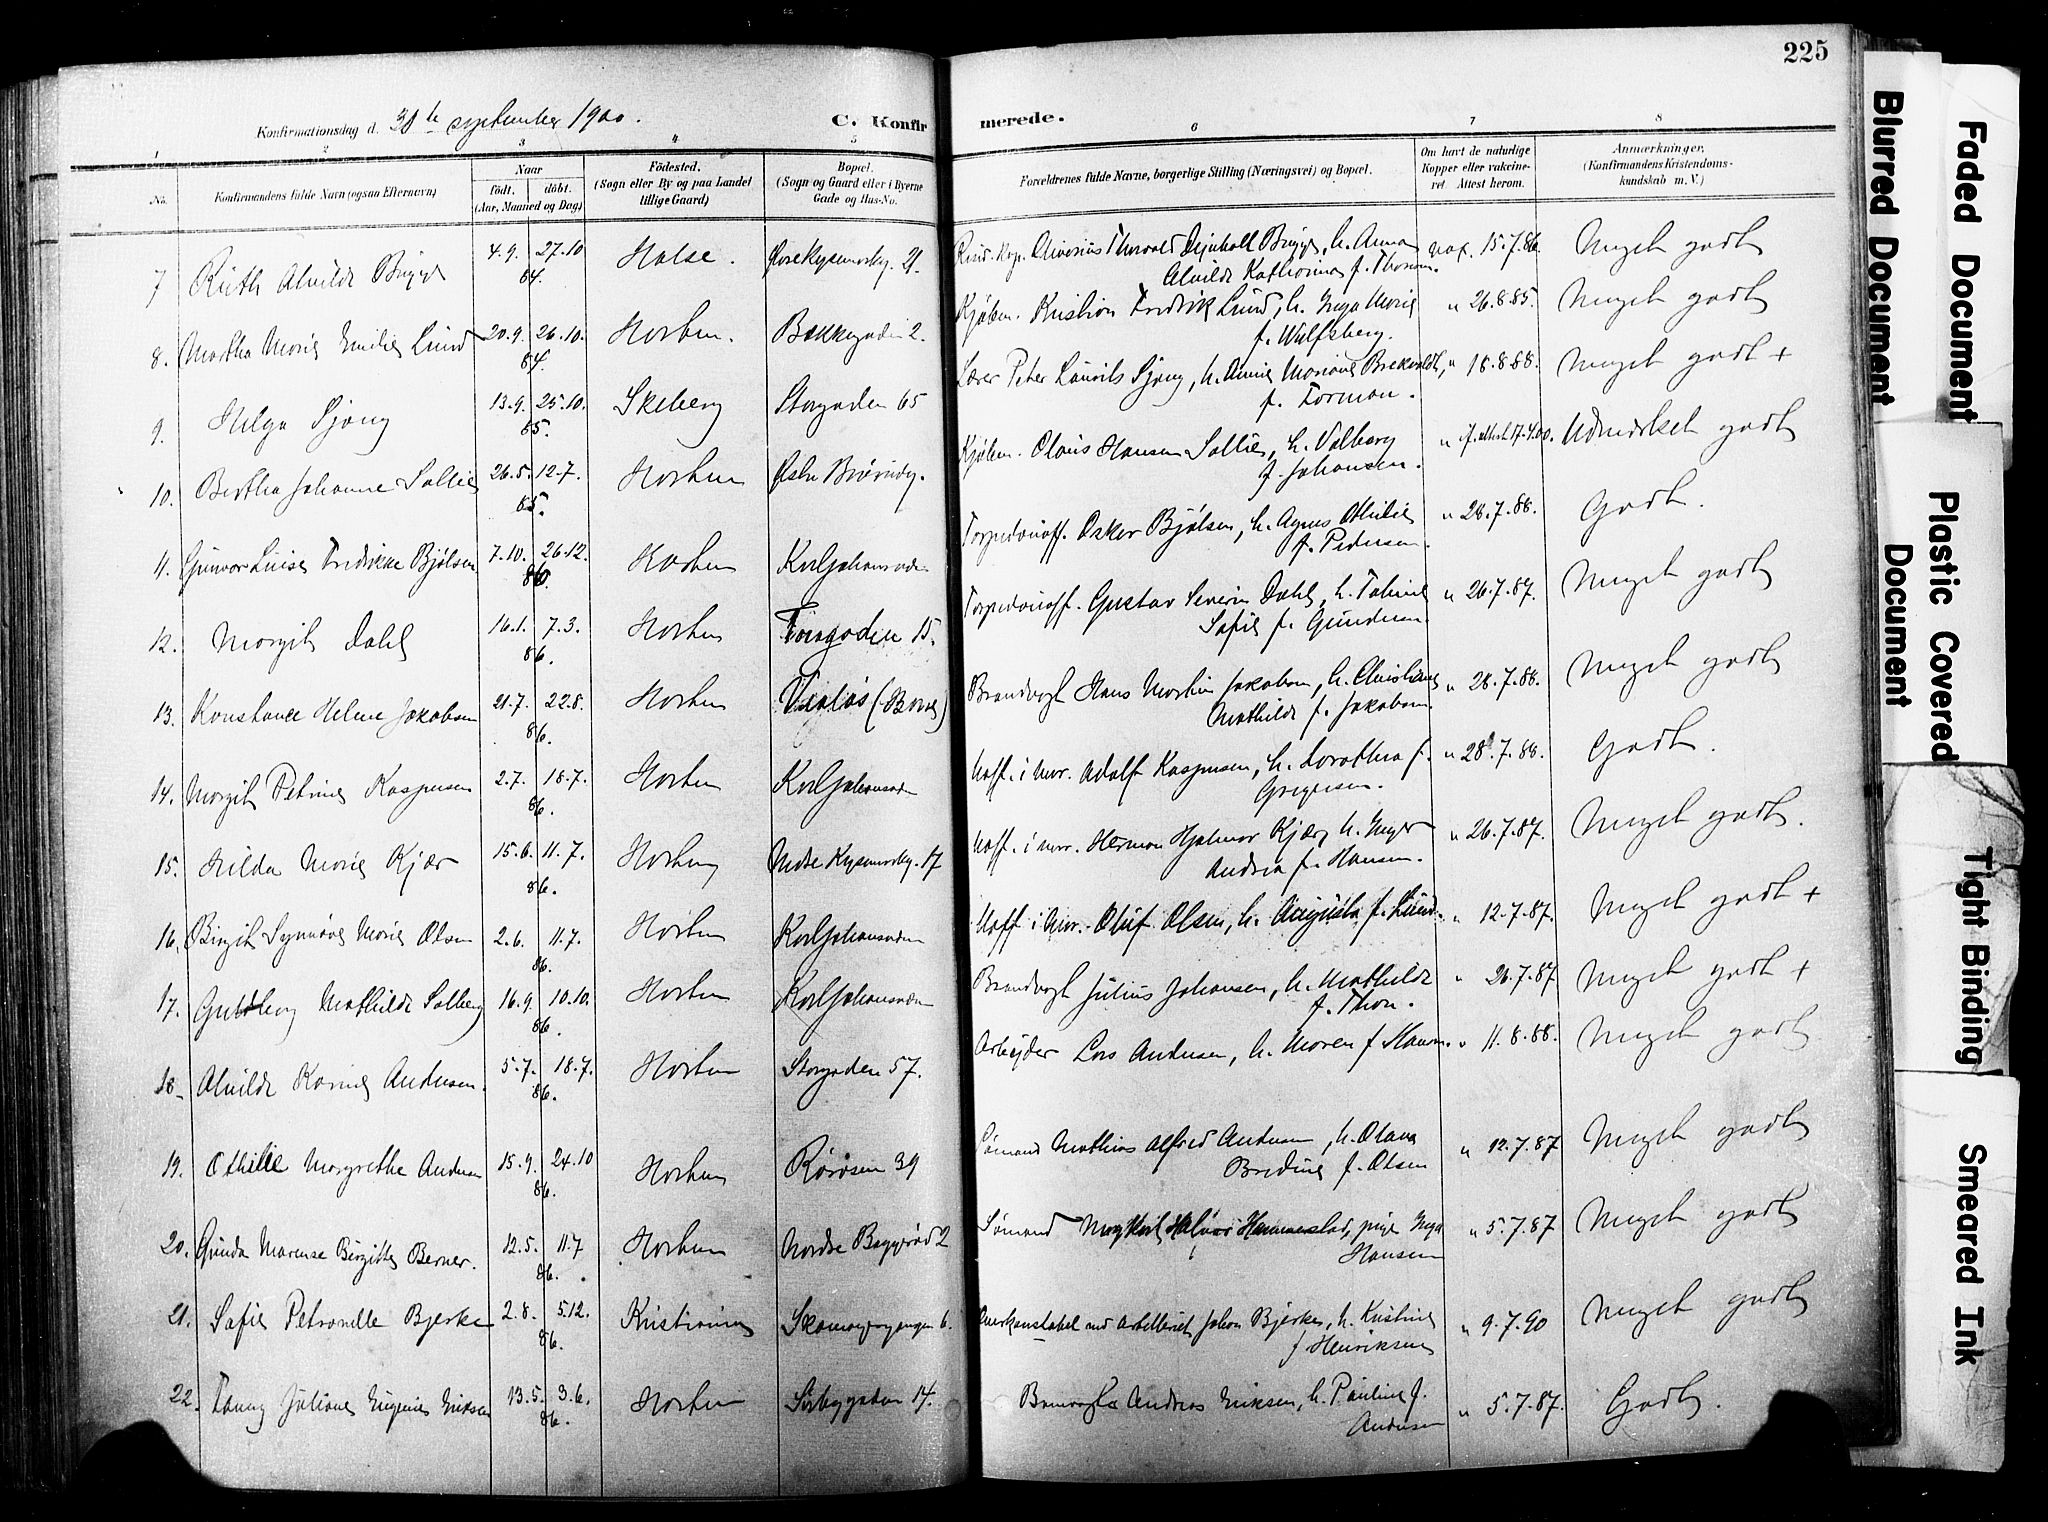 225
Konfirmationsdag d. 30th september 1900.
C. Konfir
merede.
1 2 3 4 5 6 7 8
No.
Konfirmandens fulde Navn (ogsaa Efternavn)
Naar
født. døbt.
(Aar, Maaned og Dag)
Födested.
(Sogn eller By og paa Landet
tillige Gaard)
Bopæl.
(Sogn og Gaard eller i Byerne
Gade og Hus-No.
Forældrenes fulde Navne, borgerlige Stilling (Næringsvei) og Bopæl.
Om havt de naturlige
Kopper eller vakcine-
ret Attest herom.
Anmærkninger.
(Konfirmandens Kristendoms-
kundskab m. V.)
7 Ruth Alvilde Brygge 4.9. 27.10 84. Halse. 21. Thorvald Brygge, h. Anna vax. 15.7.86. Meget godt
Alvilde Kathrine f.
8. Martha Marie Emilie Lund 20.9. 26.10. 84. Horten. Bakkegaden 2. Kjøbm. Kristian Fredrik Lund, h. Inga Marie " 26.8.85. Meget godt
f. Wulfsberg.
9. Helga Sjong 13.9. 25.10. 85. Skeberg Storgaden 65 Lærer Peter Laurits Sjong, h. Annie Mariane " 18.8.88. Meget godt +
f. Forman.
10. Bertha Johanne Sollie 26.5. 12.7. 85. Horten Kjøbm. Olaus Hansen Sollie, h. Valborg " if. attest 17.4.00. Udmærket godt
f. Johansen.
11. Gunvor Luise Fredrikke Bjølsen 7.10. 26.12. 86. Horten Karljohansvern Torpedounoff. Oskar Bjølsen, h. Agnes Othilie " 28.7.88. Godt.
f. Pedersen.
12. Margit Dahl 16.1. 7.3. 86. Horten 15. Torpedounoff. Gustav Severin Dahl, h. Tobine " 26.7.87. Meget godt
Sofie f. Gundersen
13. Konstance Helene Jakobsen 21.7. 22.8. 86. Horten (Borre) Brandvagt Hans Martin Jakobsen, h. Christiane " 28.7.88. Meget godt
Mathilde f. Jakobsen.
14. Margit Petrine Kaspersen 2.7. 18.7. 86. Horten Karljohansvern Uoff. i mar. Adolf Kaspersen, h. Dorothea f. " 28.7.88. Godt.
Gregersen.
15. Hilda Marie Kjær 15.6. 11.7. 86. Horten 17 Uoff. i mar. Herman Hjalmar Kjær, h. Inger " 26.7.87. Meget godt.
Andrea f. Hansen.
16. Birgit Synnøve Marie Olsen 2.6. 11.7. 86. Horten Karljohansvern Uoff. i mar. Oluf Olsen, h. Augusta f. Lund. " 12.7.87. Meget godt +
17. Gudborg Mathilde Solberg 16.9. 10.10. 86. Horten Karljohansvern Brandvagt Julius Johansen, h. Mathilde " 26.7.87 Meget godt +
f. Thon.
18. Alvilde Karine Andersen. 5.7. 18.7. 86. Horten Storgaden 57. Arbejder Lars Andersen, h. Maren f. Hansen. " 11.8.88. Meget godt
19. Othilie Margrethe Andersen 15.9. 24.10 86. Horten Rørosen 39 Sømand Mathias Alfred Andersen, h. Olava " 12.7.87 Meget godt
f. Olsen
20. Gunda Marense Birgitte Berner. 12.5. 11.7 86. Horten Nordre Baggerød 2 Sømand Hammerstad, pige Inga " 5.7.87 Meget godt
Hansen
21. Sofie Petronelle Bjerke 2.8. 5.12. 86. Kristiania 6. ved Artilleriet Johan Bjerke, h. Kristine " 9.7.90 Meget godt
f. Henriksen
22. Fanny Juliane Eugenie Eriksen 13.5. 3.6. 86. Horten 14. Andreas Eriksen, h. Pauline f. " 5.7.87. Godt.
Andersen
Faded Document
Blurred Document
Plastic Covered
Document
Tight Binding
Smeared Ink